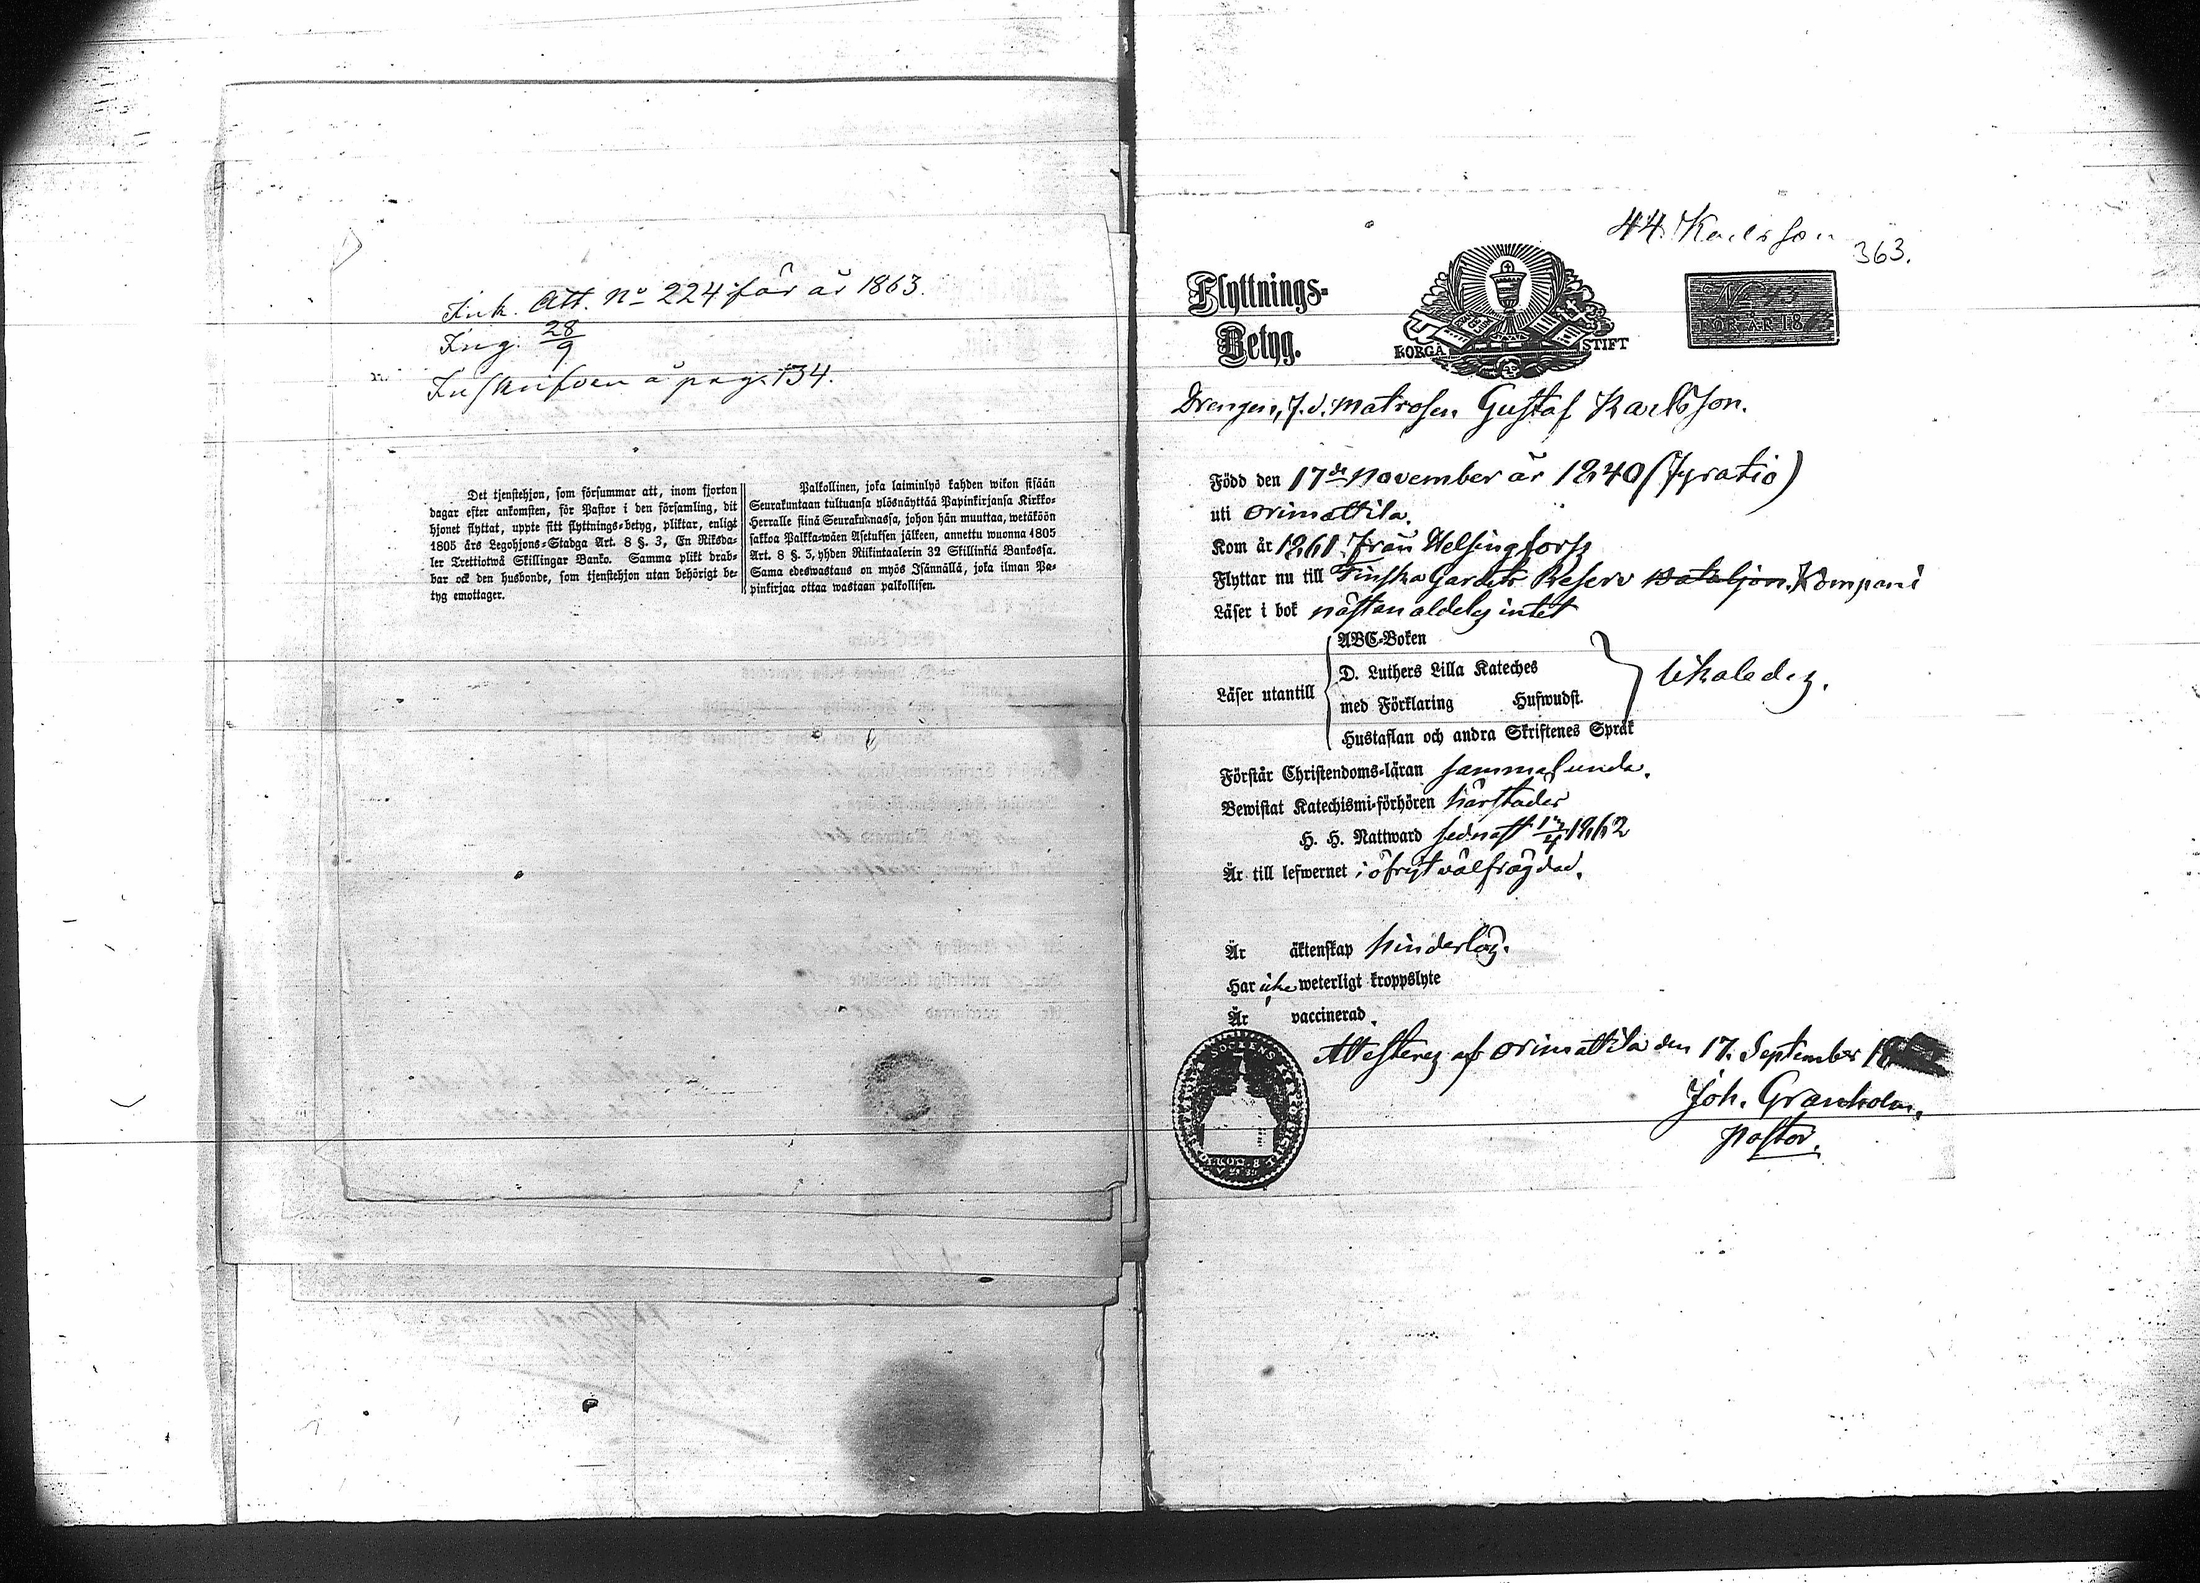 Ink. Att. No 224 för år 1863.
Ing. 28/9
Inskrifven å pag. 134.
Det tjenstehjon, som försummar att, inom fjorton
dagar efter ankomsten, för Pastor i den församling, dit
hjonet flyttat, uppte sitt flyttnings-betyg, pliktar, enligt
1805 års Legohjons-Stadga Art. 8 §. 3, En Riksda-
ler Trettiotwå Skillingar Banko. Samma plikt drab-
bar ock den husbonde, som tjenstehjon utan behörigt be-
tyg emottager.
Palkollinen, joka laiminlyö kahden wikon sisään
Seurakuntaan tultuansa ylösnäyttää Papinkirjansa Kirkko-
Herralle siinä Seurakunnassa, johon hän muuttaa, wetäköön
sakkoa Palkka-wäen Asetuksen jälkeen, annettu wuonna 1805
Art. 8 §. 3, yhden Riikintaalerin 32 Skillinkiä Bankossa.
Sama edeswastaus on myös Isännällä, joka ilman Pa-
pinkirjaa ottaa wastaan palkollisen.
44. Karlsson
363.
Flyttnings-
Betyg.
BORGÅ STIFT
FÖR ÅR 18
Drengen, f.d. matrosen Gustaf Karlsson.
Född den 17de November år 1840 (Fyratio)
uti Orimattila.
Kom år 1861 från Helsingfors
Flyttar nu till Finska Gardets Reserv Bataljon. Kompani
Läser i bok nästan aldeles intet
ABC-Boken
D. Luthers Lilla Kateches
Läser utantill med Förklaring Hufwudst. likaledes.
Hustaflan och andra Skriftenes Språk
Förstår Christendoms-läran sammalunda.
Bewistat Katechismi-förhören härstädes
H. H. Nattward sednast 1862
Är till lefwernet i öfrigt välfrägdad.
Är äktenskap hinderlös.
Har icke weterligt kroppslyte
Är vaccinerad.
Attesteras af Orimattila den 17. September
Joh. Granholm.
Pastor.